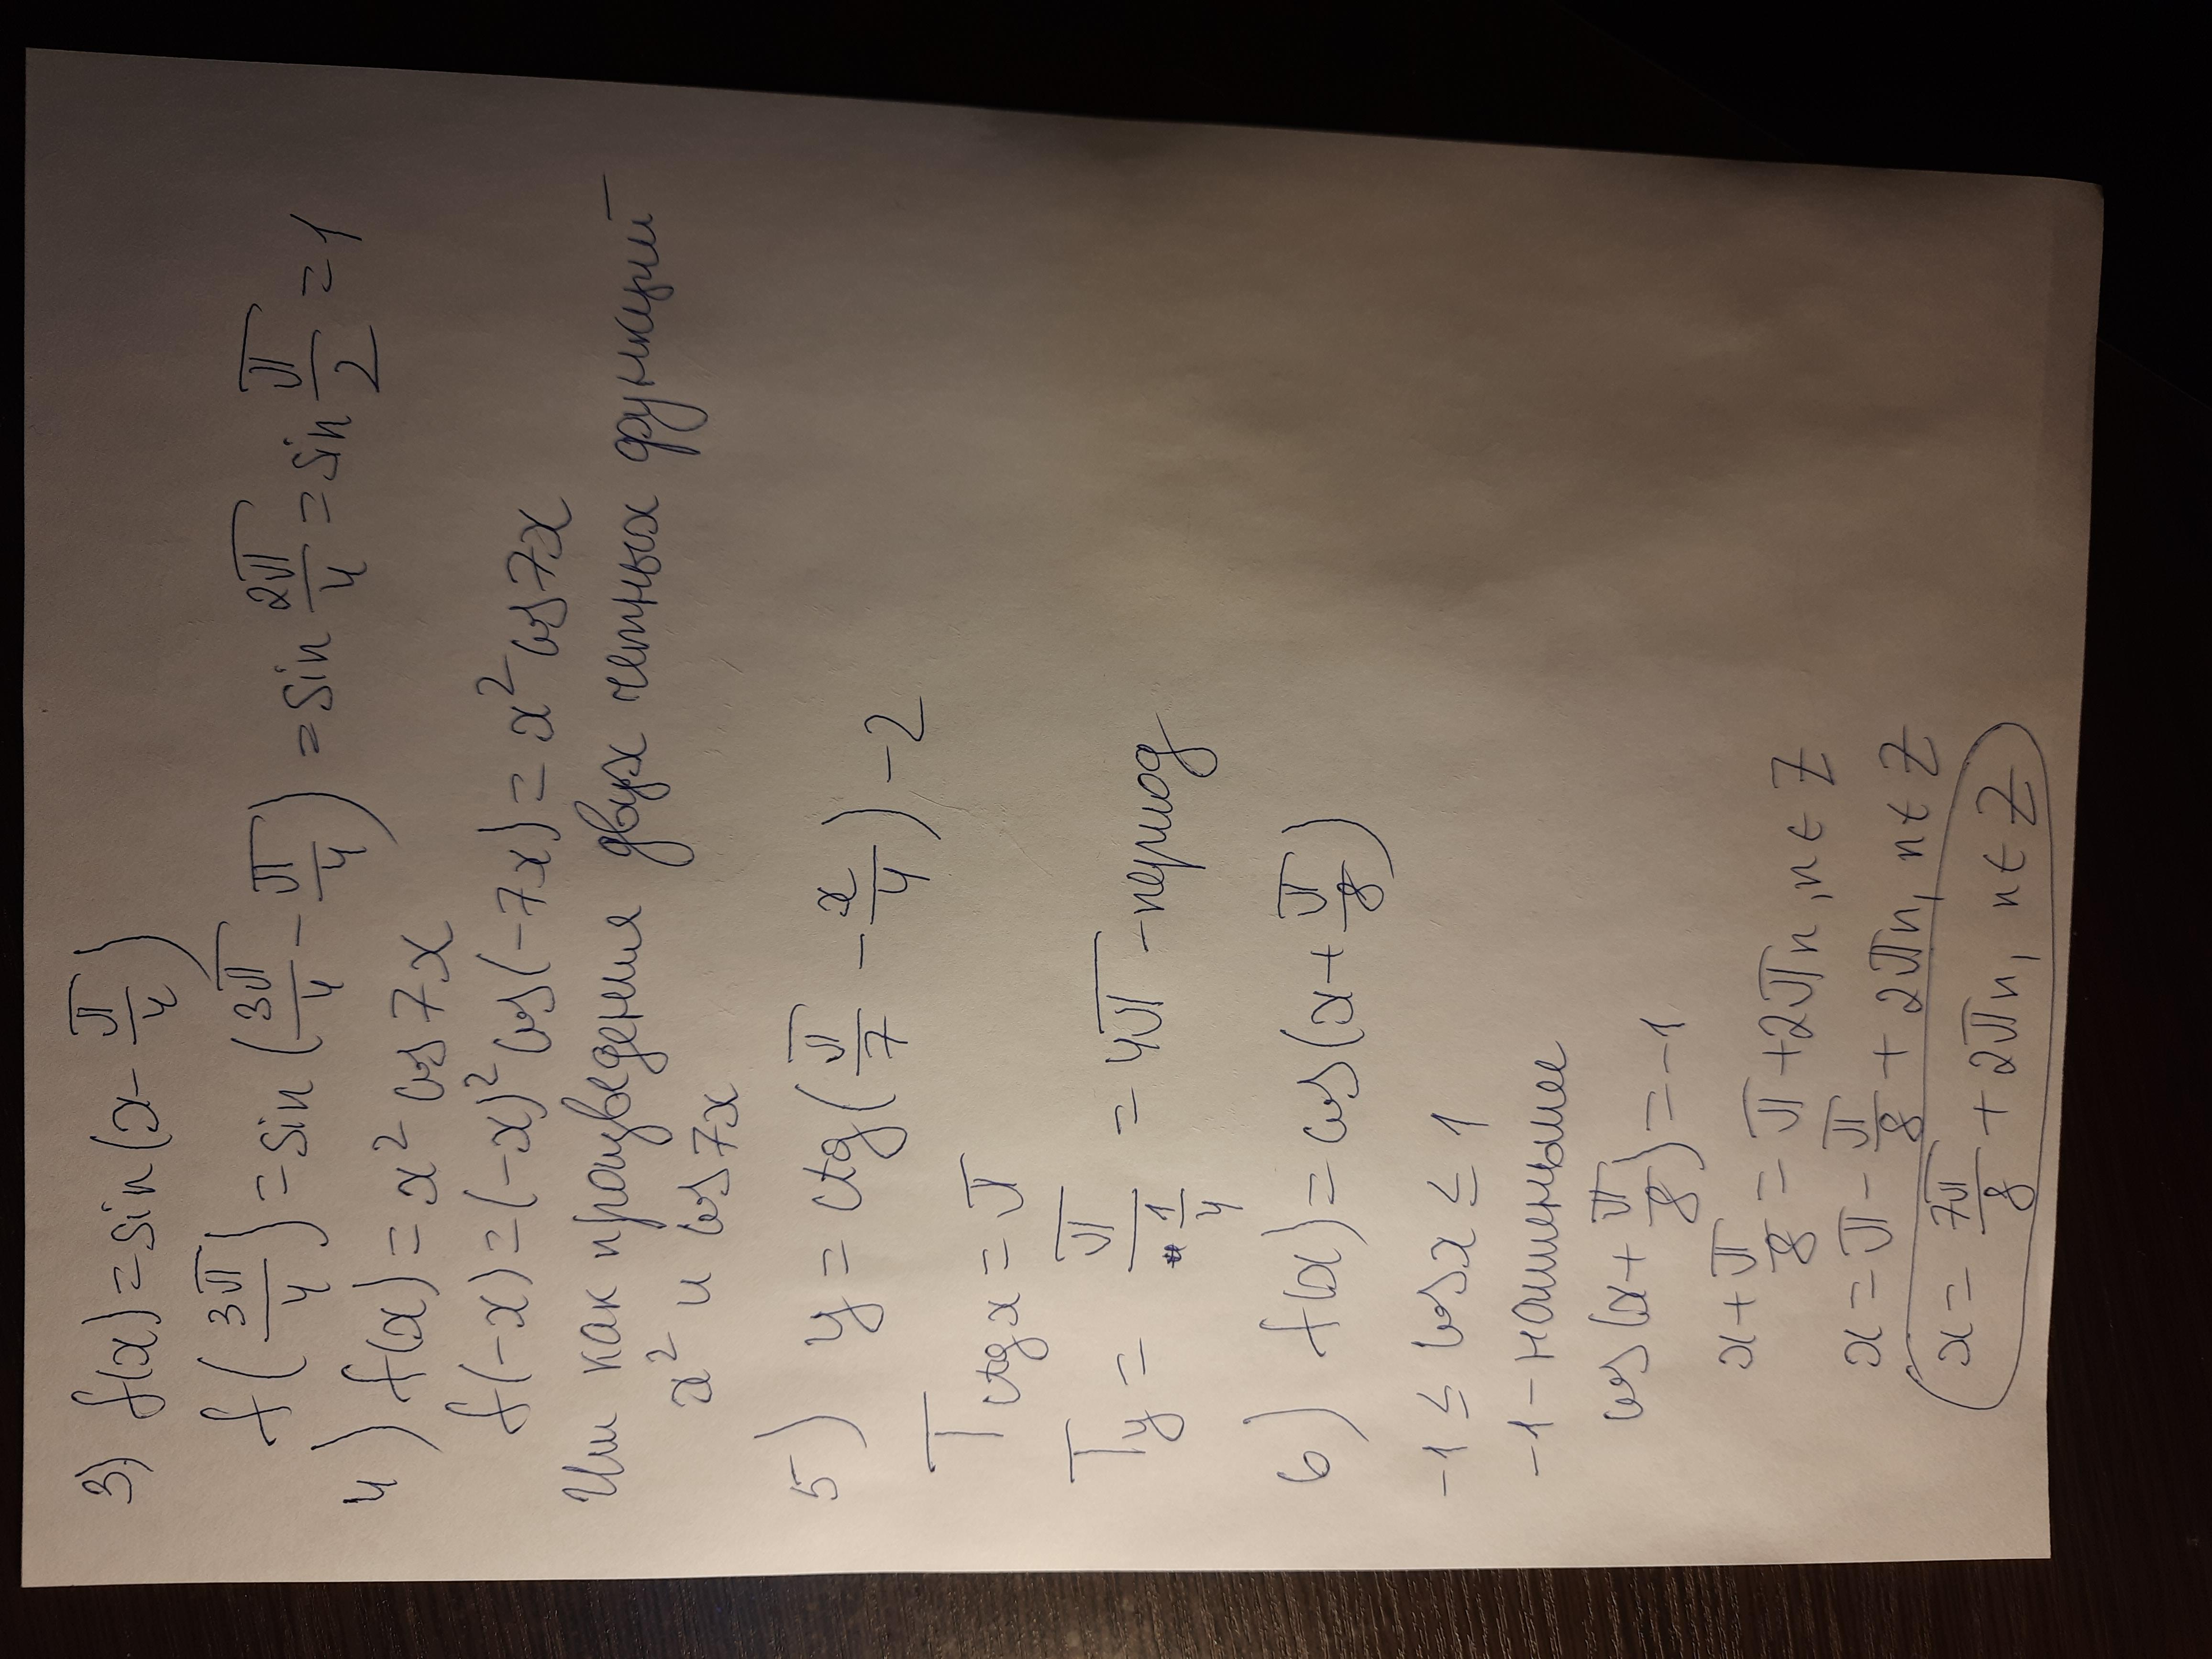 3) f(x) = sin(x - π/4)
f(3π/4) = sin(3π/4 - π/4) = sin 2π/4 = sin π/2 = 1
4) f(x) = x² cos 7x
f(-x) = (-x)² cos(-7x) = x² cos 7x
Или как произведения двух четных функций
x² и cos 7x
5) y = ctg(π/7 - x/4) - 2
T ctgx = π
Ty = π/(1/4) = 4π - период
6) f(x) = cos(x + π/8)
-1 ≤ cosx ≤ 1
-1 - наименьшее
cos(x + π/8) = -1
x + π/8 = π + 2πn, n ∈ Z
x = π - π/8 + 2πn, n ∈ Z
x = 7π/8 + 2πn, n ∈ Z